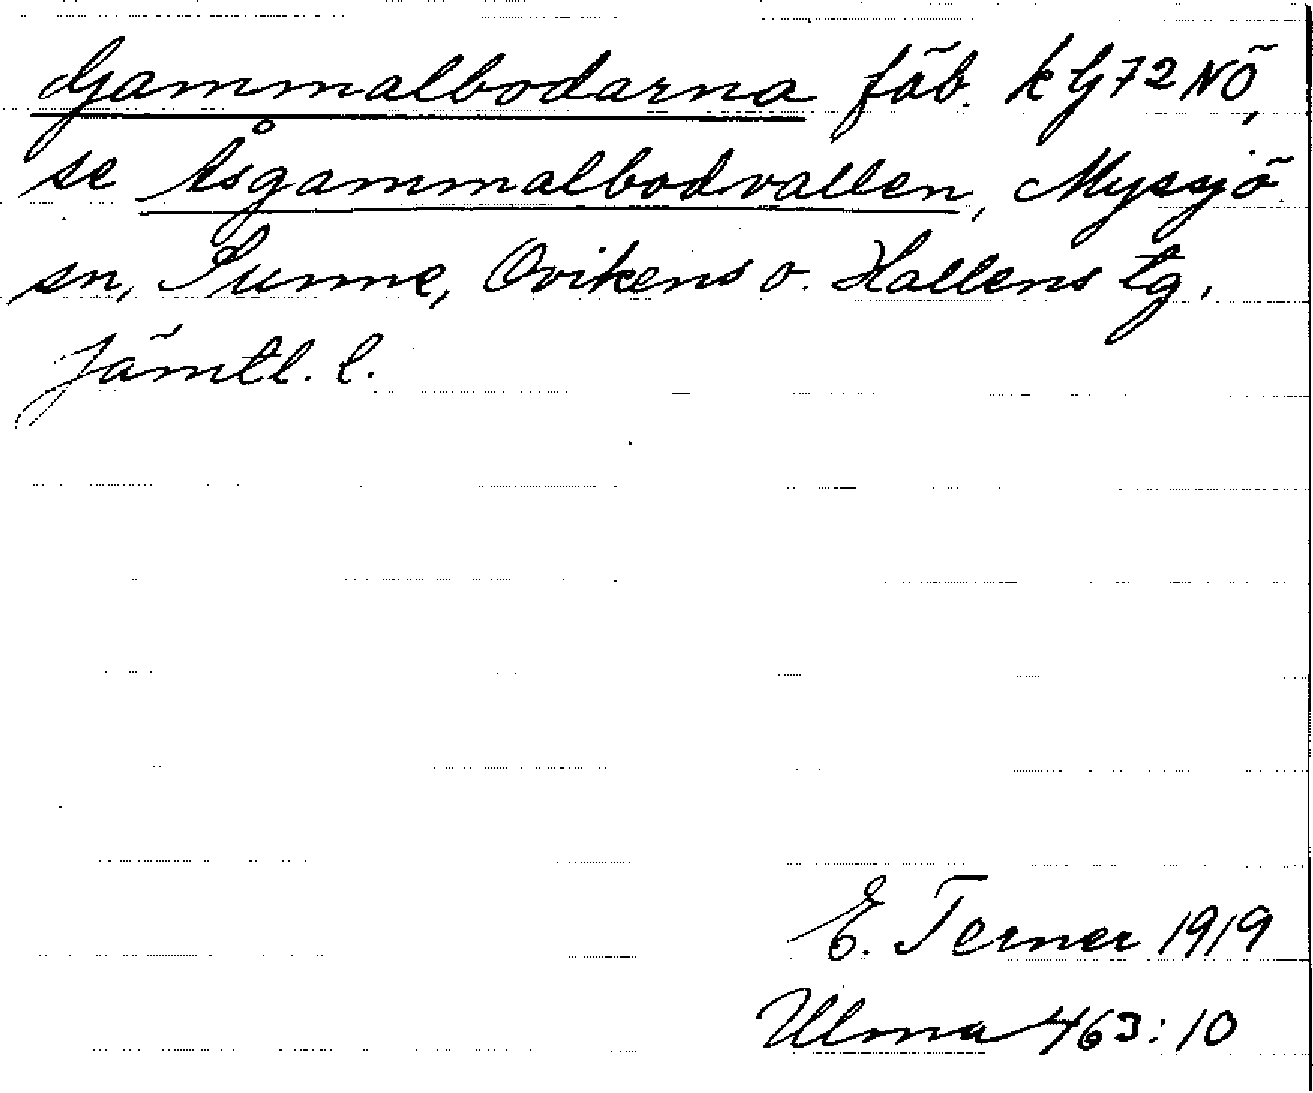 Gammalbodarna fäb. kG72NÖ,
se Åsgammalbodvallen, Myssjö
sn, Sunne, Ovikens o. Hallens tg,
Jämtl. l.
E. Terner 1919
Ulma 463:10